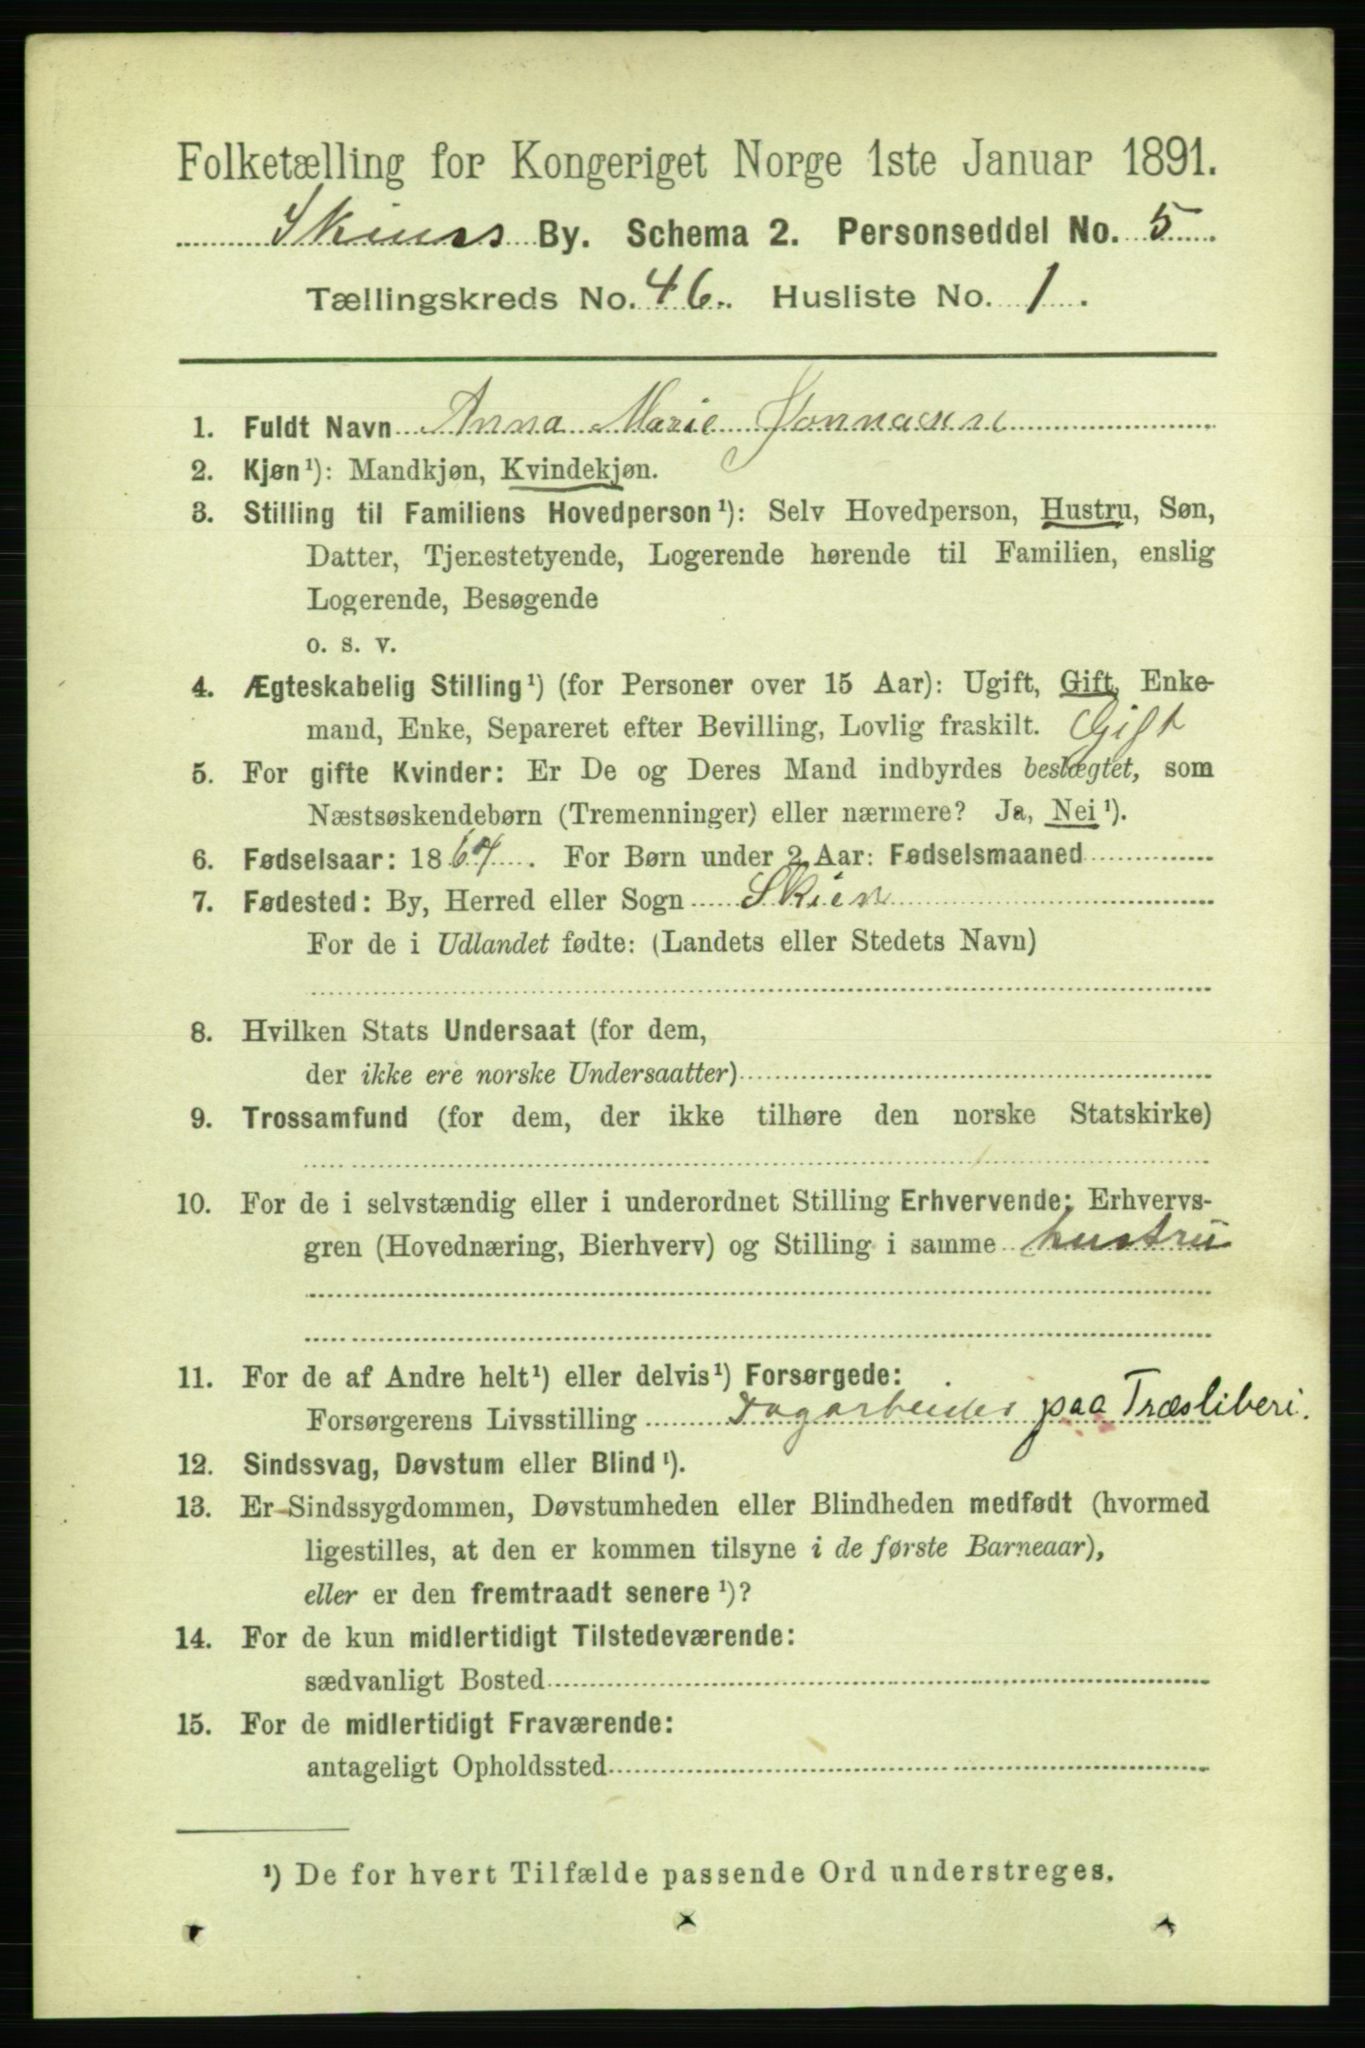 Folketælling for Kongeriget Norge 1ste Januar 1891.
Skiens By. Schema 2. Personseddel No. 5
Tællingskreds No. 46. Husliste No. 1.
1. Fuldt Navn Anna Marie
2. Kjøn¹): Mandkjøn, Kvindekjøn.
3. Stilling til Familiens Hovedperson¹): Selv Hovedperson, Hustru, Søn,
Datter, Tjenestetyende, Logerende hørende til Familien, enslig
Logerende, Besøgende
o. s. v.
4. Ægteskabelig Stilling¹) (for Personer over 15 Aar): Ugift, Gift, Enke-
mand, Enke, Separeret efter Bevilling, Lovlig fraskilt. Gift
5. For gifte Kvinder: Er De og Deres Mand indbyrdes beslægtet, som
Næstsøskendebørn (Tremenninger) eller nærmere? Ja, Nei¹).
6. Fødselsaar: 1867. For Børn under 2 Aar: Fødselsmaaned
7. Fødested: By, Herred eller Sogn Skien
For de i Udlandet fødte: (Landets eller Stedets Navn)
8. Hvilken Stats Undersaat (for dem,
der ikke ere norske Undersaatter)
9. Trossamfund (for dem, der ikke tilhøre den norske Statskirke)
10. For de i selvstændig eller i underordnet Stilling Erhvervende: Erhvervs-
gren (Hovednæring, Bierhverv) og Stilling i samme hustru
11. For de af Andre helt¹) eller delvis¹) Forsørgede:
Forsørgerens Livsstilling Dagarbeider paa Træsliberi.
12. Sindssvag, Døvstum eller Blind¹).
13. Er Sindssygdommen, Døvstumheden eller Blindheden medfødt (hvormed
ligestilles, at den er kommen tilsyne i de første Barneaar),
eller er den fremtraadt senere¹)?
14. For de kun midlertidigt Tilstedeværende:
sædvanligt Bosted
15. For de midlertidigt Fraværende:
antageligt Opholdssted
¹) De for hvert Tilfælde passende Ord understreges.